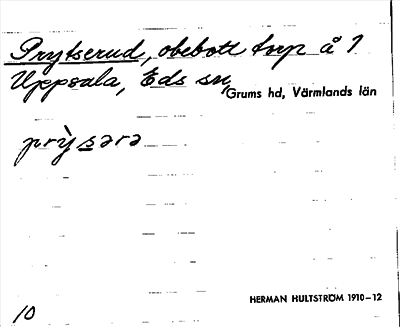 Prytserud, obebott torp å 1
Uppsala, Eds sn,
Grums hd, Värmlands län
prỳsərə
HERMAN HULTSTRÖM 1910-12
10